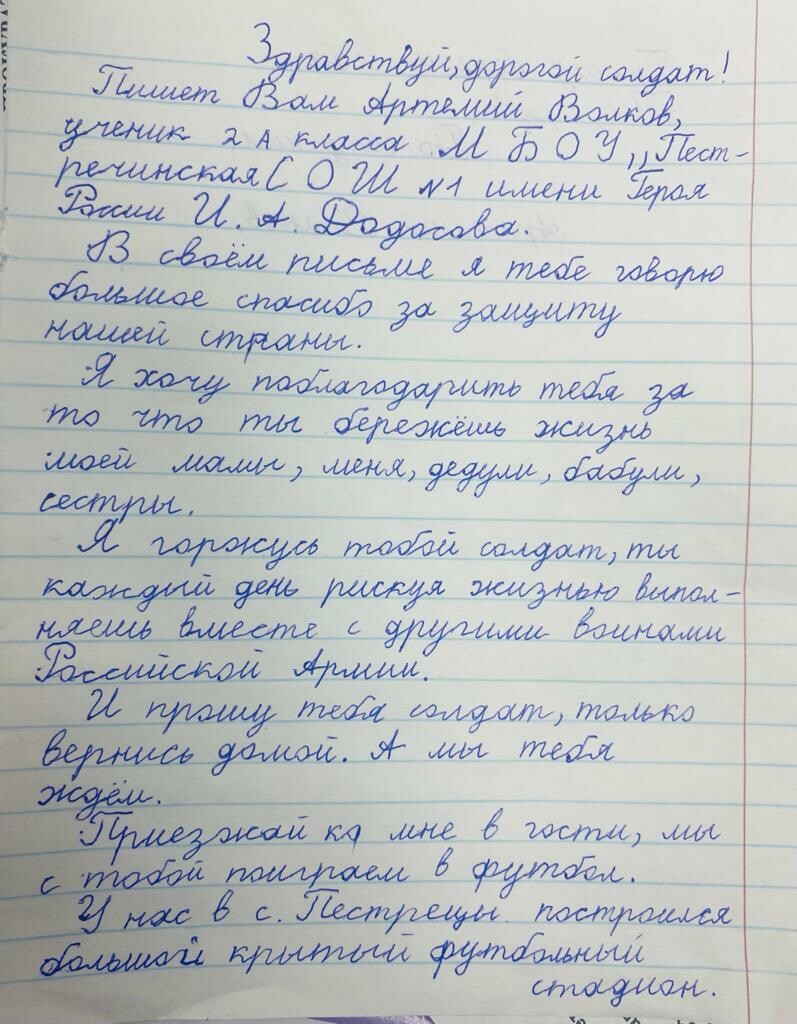 Здравствуй, дорогой солдат!
Пишет Вам Артемий Волков,
ученик 2 А класса М Б О У ,,Пест-
речинская С О Ш №1 имени Героя
России И. А. Додосова.
В своём письме я тебе говорю
большое спасибо за защиту
нашей страны.
Я хочу поблагодарить тебя за
то что ты бережёшь жизнь
моей мамы, меня, дедули, бабули,
сестры.
Я горжусь тобой солдат, ты
каждый день рискуя жизнью выпол-
няешь вместе с другими воинами
Российской Армии.
И прошу тебя солдат, только
вернись домой. А мы тебя
ждём.
Приезжай ко мне в гости, мы
с тобой поиграем в футбол.
У нас в с. Пестрецы построился
большой крытый футбольный
стадион.